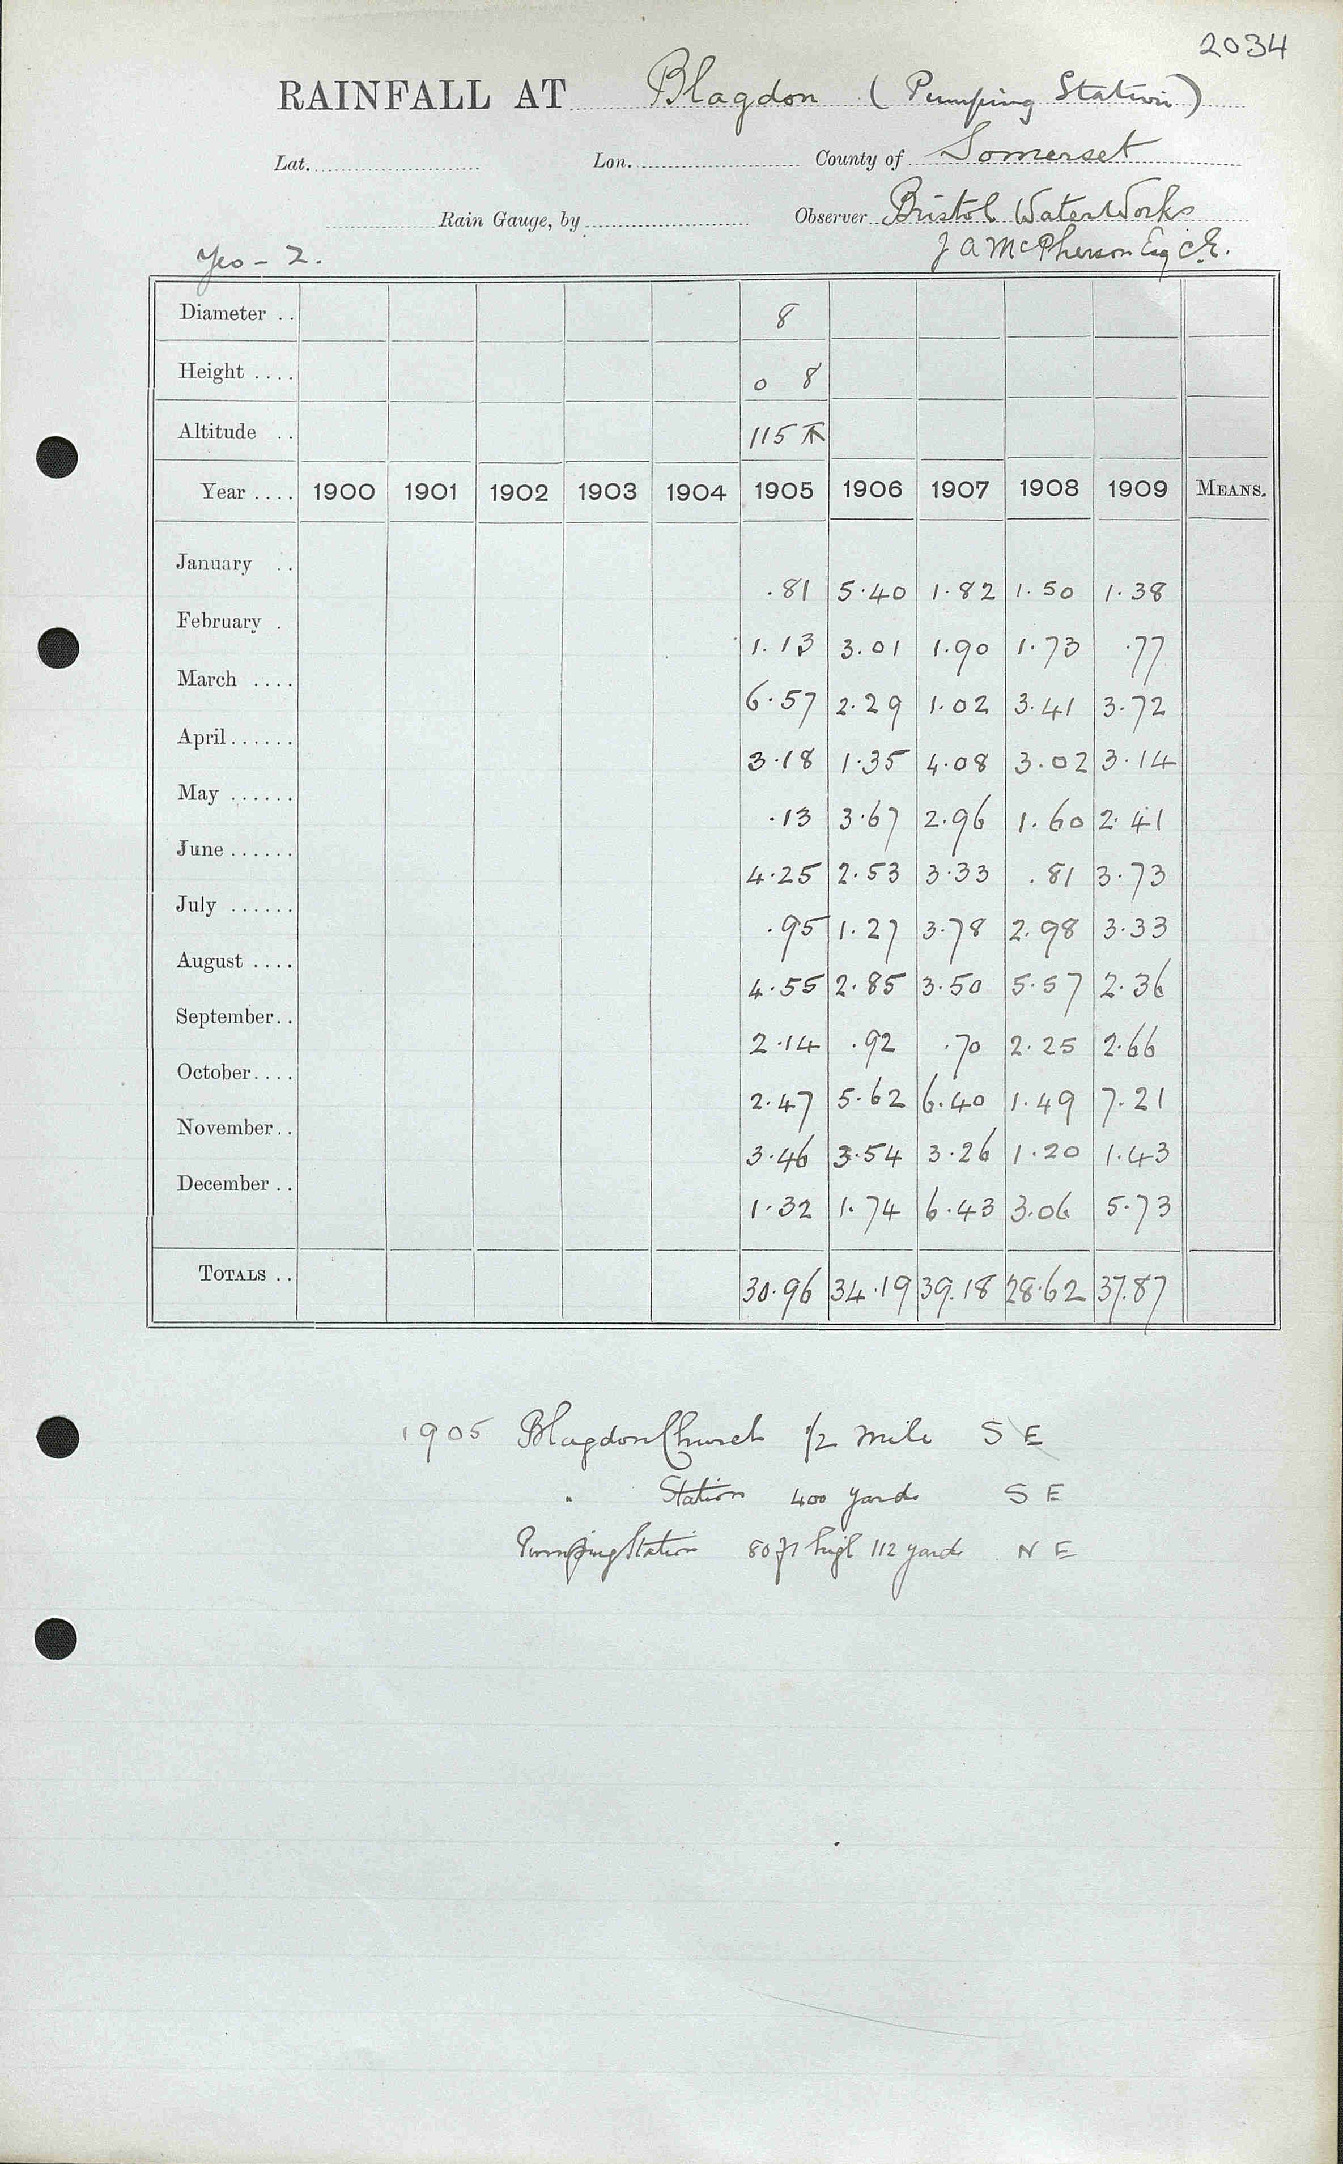 2034
RAINFALL AT Blagdon (Pumping Station)
Lat. Lon. County of Somerset
Rain Gauge, by Observer Bristol WaterWorks
J A McPherson Esq C.E.
Yeo - 2.
Diameter .. 8
Height .... 0 8
Altitude .. 115
Year .... 1900 1901 1902 1903 1904 1905 1906 1907 1908 1909 MEANS.
January .. .81 5.40 1.82 1.50 1.38
February . 1.13 3.01 1.90 1.73 .77
March .... 6.57 2.29 1.02 3.41 3.72
April...... 3.18 1.35 4.08 3.02 3.14
May ...... .13 3.67 2.96 1.60 2.41
June...... 4.25 2.53 3.33 .81 3.73
July ...... .95 1.27 3.78 2.98 3.33
August .... 4.55 2.85 3.50 5.57 2.36
September.. 2.14 .92 .70 2.25 2.66
October.... 2.47 5.62 6.40 1.49 7.21
November.. 3.46 3.54 3.26 1.20 1.43
December .. 1.32 1.74 6.43 3.06 5.73
TOTALS .. 30.96 34.19 39.18 28.62 37.87
1905 Blagdon Church 1/2 mile S E
" Station 400 yards S E
Pumping Station 80 ft high 112 yards N E